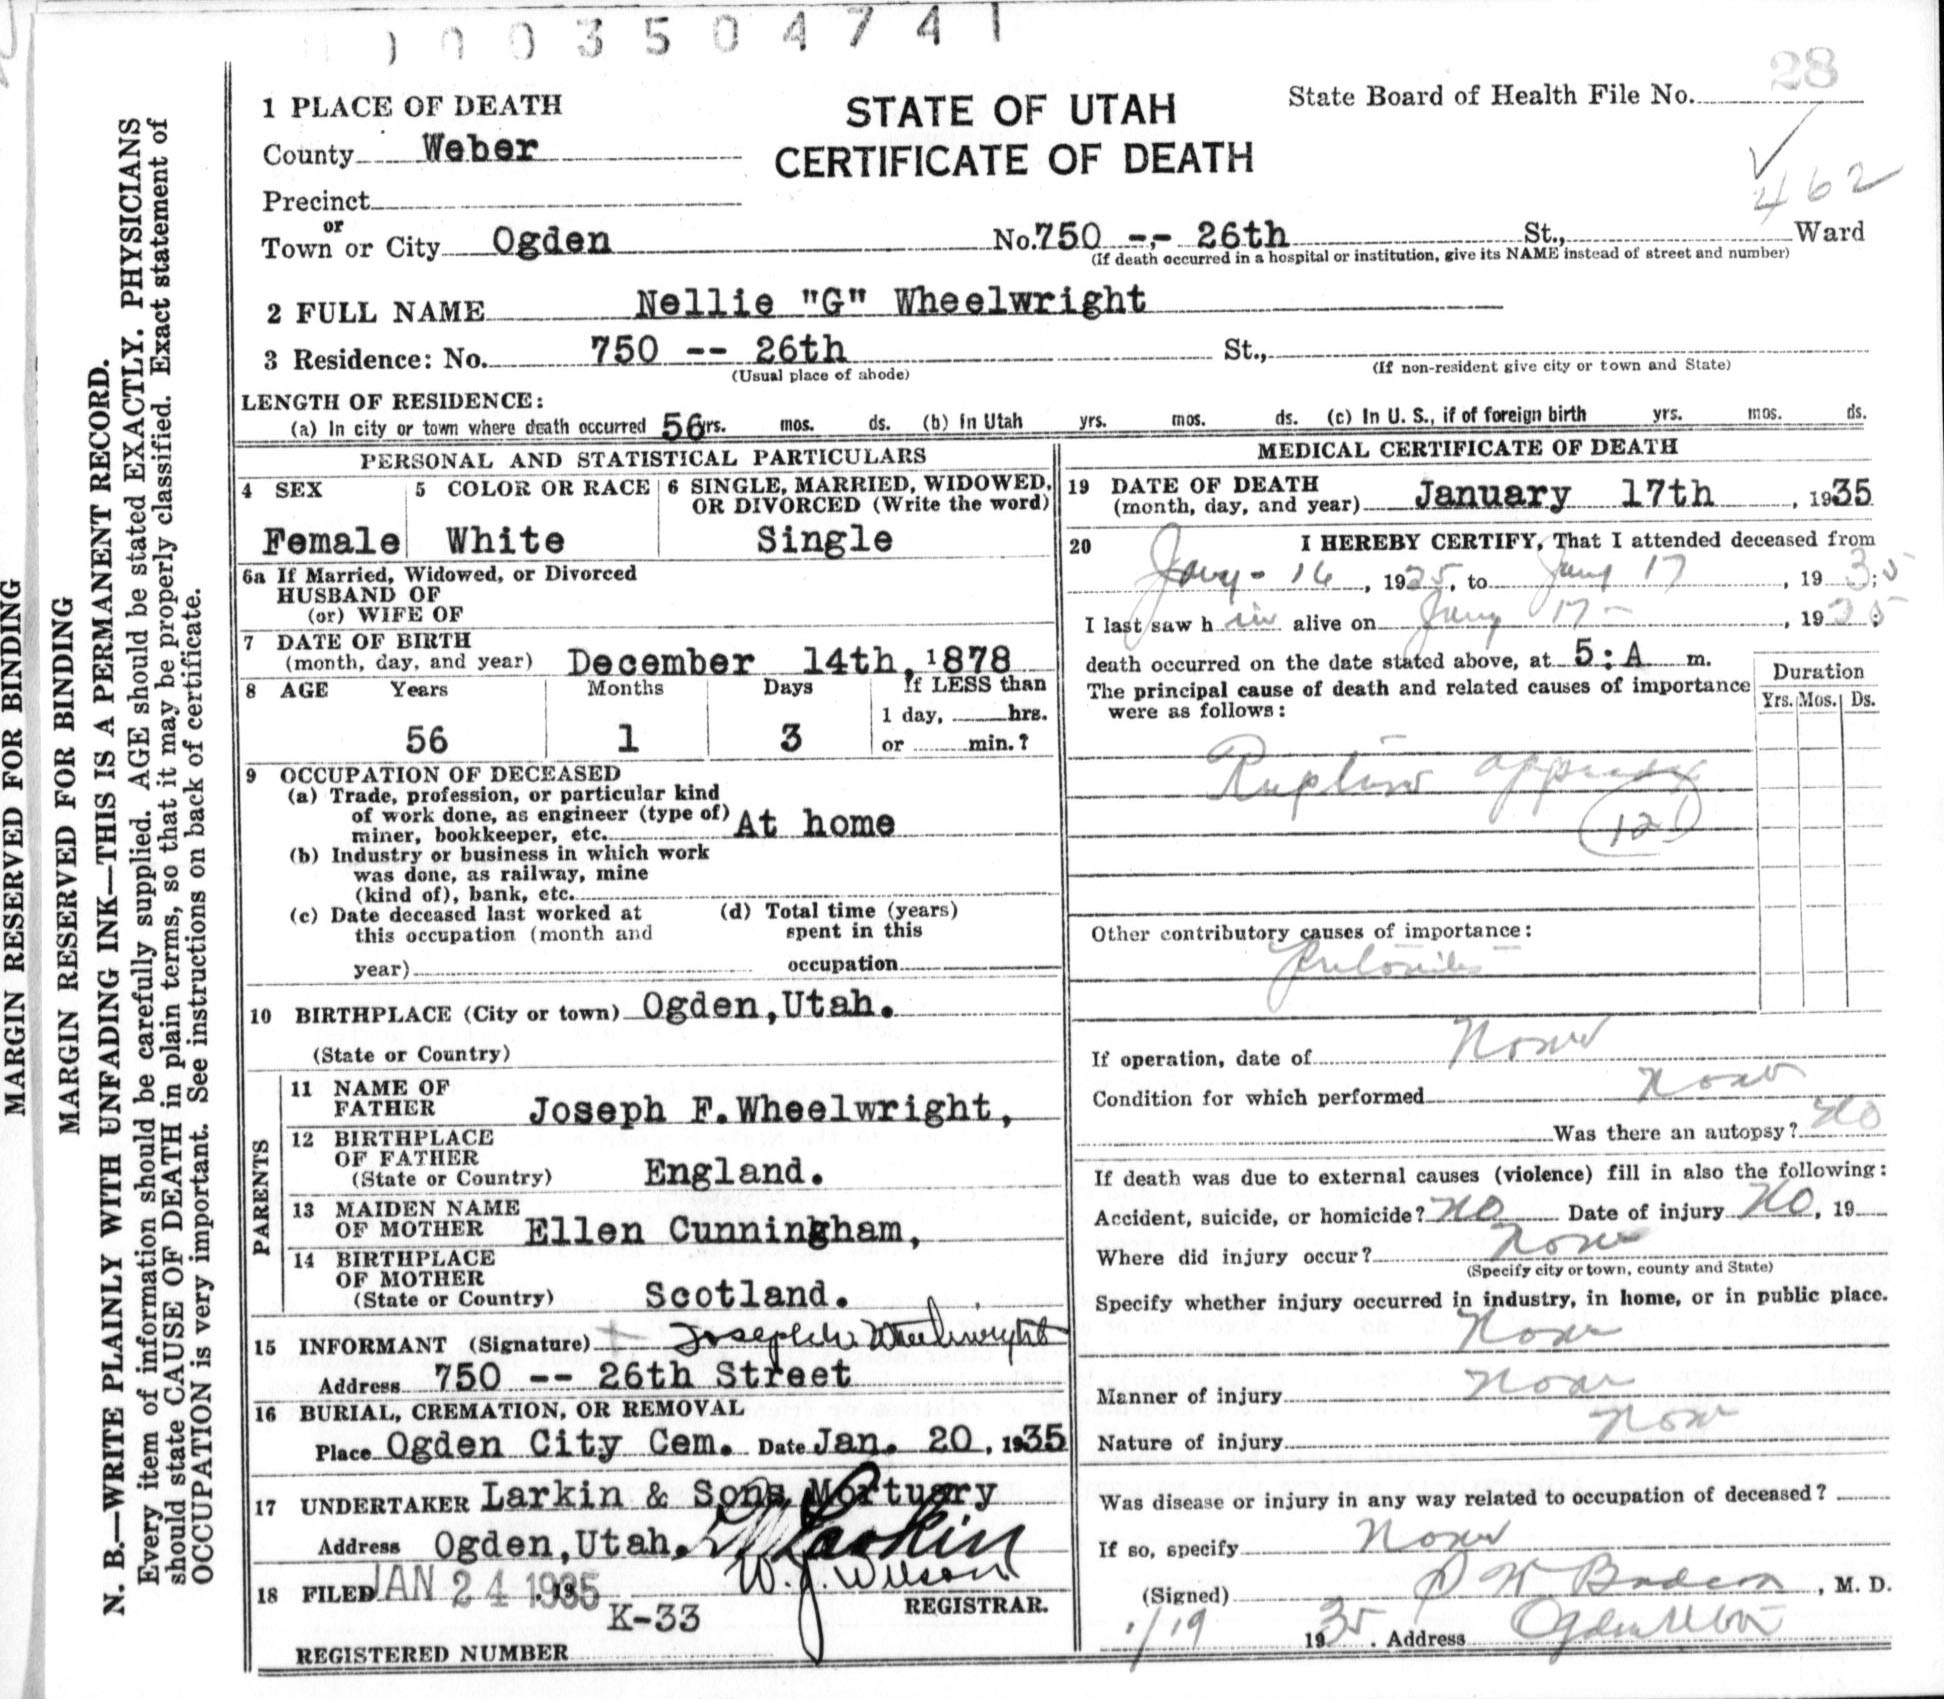 0003504741
28
1 PLACE OF DEATH
STATE OF UTAH
CERTIFICATE OF DEATH
State Board of Health File No.
County Weber
462
Precinct
or
Town or City Ogden No. 750 -- 26th St., Ward
(If death occurred in a hospital or institution, give its NAME instead of street and number)
2 FULL NAME Nellie "G" Wheelwright
3 Residence: No. 750 -- 26th St.,
(Usual place of abode) (If non-resident give city or town and State)
LENGTH OF RESIDENCE:
(a) In city or town where death occurred 56 yrs. mos. ds. (b) In Utah yrs. mos. ds. (c) In U. S., if of foreign birth yrs. mos. ds.
PERSONAL AND STATISTICAL PARTICULARS
4 SEX 5 COLOR OR RACE 6 SINGLE, MARRIED, WIDOWED,
OR DIVORCED (Write the word)
Female White Single
6a If Married, Widowed, or Divorced
HUSBAND OF
(or) WIFE OF
7 DATE OF BIRTH
(month, day, and year) December 14th, 1878
8 AGE Years Months Days If LESS than
1 day, hrs.
56 1 3 or min.?
9 OCCUPATION OF DECEASED
(a) Trade, profession, or particular kind
of work done, as engineer (type of)
miner, bookkeeper, etc. At home
(b) Industry or business in which work
was done, as railway, mine
(kind of), bank, etc.
(c) Date deceased last worked at (d) Total time (years)
this occupation (month and spent in this
year) occupation
10 BIRTHPLACE (City or town) Ogden, Utah.
(State or Country)
PARENTS
11 NAME OF
FATHER Joseph F. Wheelwright,
12 BIRTHPLACE
OF FATHER
(State or Country) England.
13 MAIDEN NAME
OF MOTHER Ellen Cunningham,
14 BIRTHPLACE
OF MOTHER
(State or Country) Scotland.
15 INFORMANT (Signature) Wheelwright
Address 750 -- 26th Street
16 BURIAL, CREMATION, OR REMOVAL
Place Ogden City Cem. Date Jan. 20, 1935
17 UNDERTAKER Larkin & Sons Mortuary
Address Ogden, Utah. Larkin
18 FILED JAN 24 1935 W. J. Wilson
REGISTRAR.
K-33
REGISTERED NUMBER
MEDICAL CERTIFICATE OF DEATH
19 DATE OF DEATH
(month, day, and year) January 17th, 1935
20 I HEREBY CERTIFY, That I attended deceased from
Jany - 16, 1935, to Jany 17, 1935;
I last saw h alive on Jany 17 -, 1935;
death occurred on the date stated above, at 5:A m.
The principal cause of death and related causes of importance
were as follows:
Duration
Yrs. Mos. Ds.
121
Other contributory causes of importance:
If operation, date of None
Condition for which performed None
Was there an autopsy? No
If death was due to external causes (violence) fill in also the following:
Accident, suicide, or homicide? No Date of injury No, 19
Where did injury occur? None
(Specify city or town, county and State)
Specify whether injury occurred in industry, in home, or in public place.
None
Manner of injury None
Nature of injury None
Was disease or injury in any way related to occupation of deceased?
If so, specify None
(Signed) , M. D.
1/19 1935. Address Ogden Utah
MARGIN RESERVED FOR BINDING
MARGIN RESERVED FOR BINDING
N. B.—WRITE PLAINLY WITH UNFADING INK—THIS IS A PERMANENT RECORD.
Every item of information should be carefully supplied. AGE should be stated EXACTLY. PHYSICIANS
should state CAUSE OF DEATH in plain terms, so that it may be properly classified. Exact statement of
OCCUPATION is very important. See instructions on back of certificate.